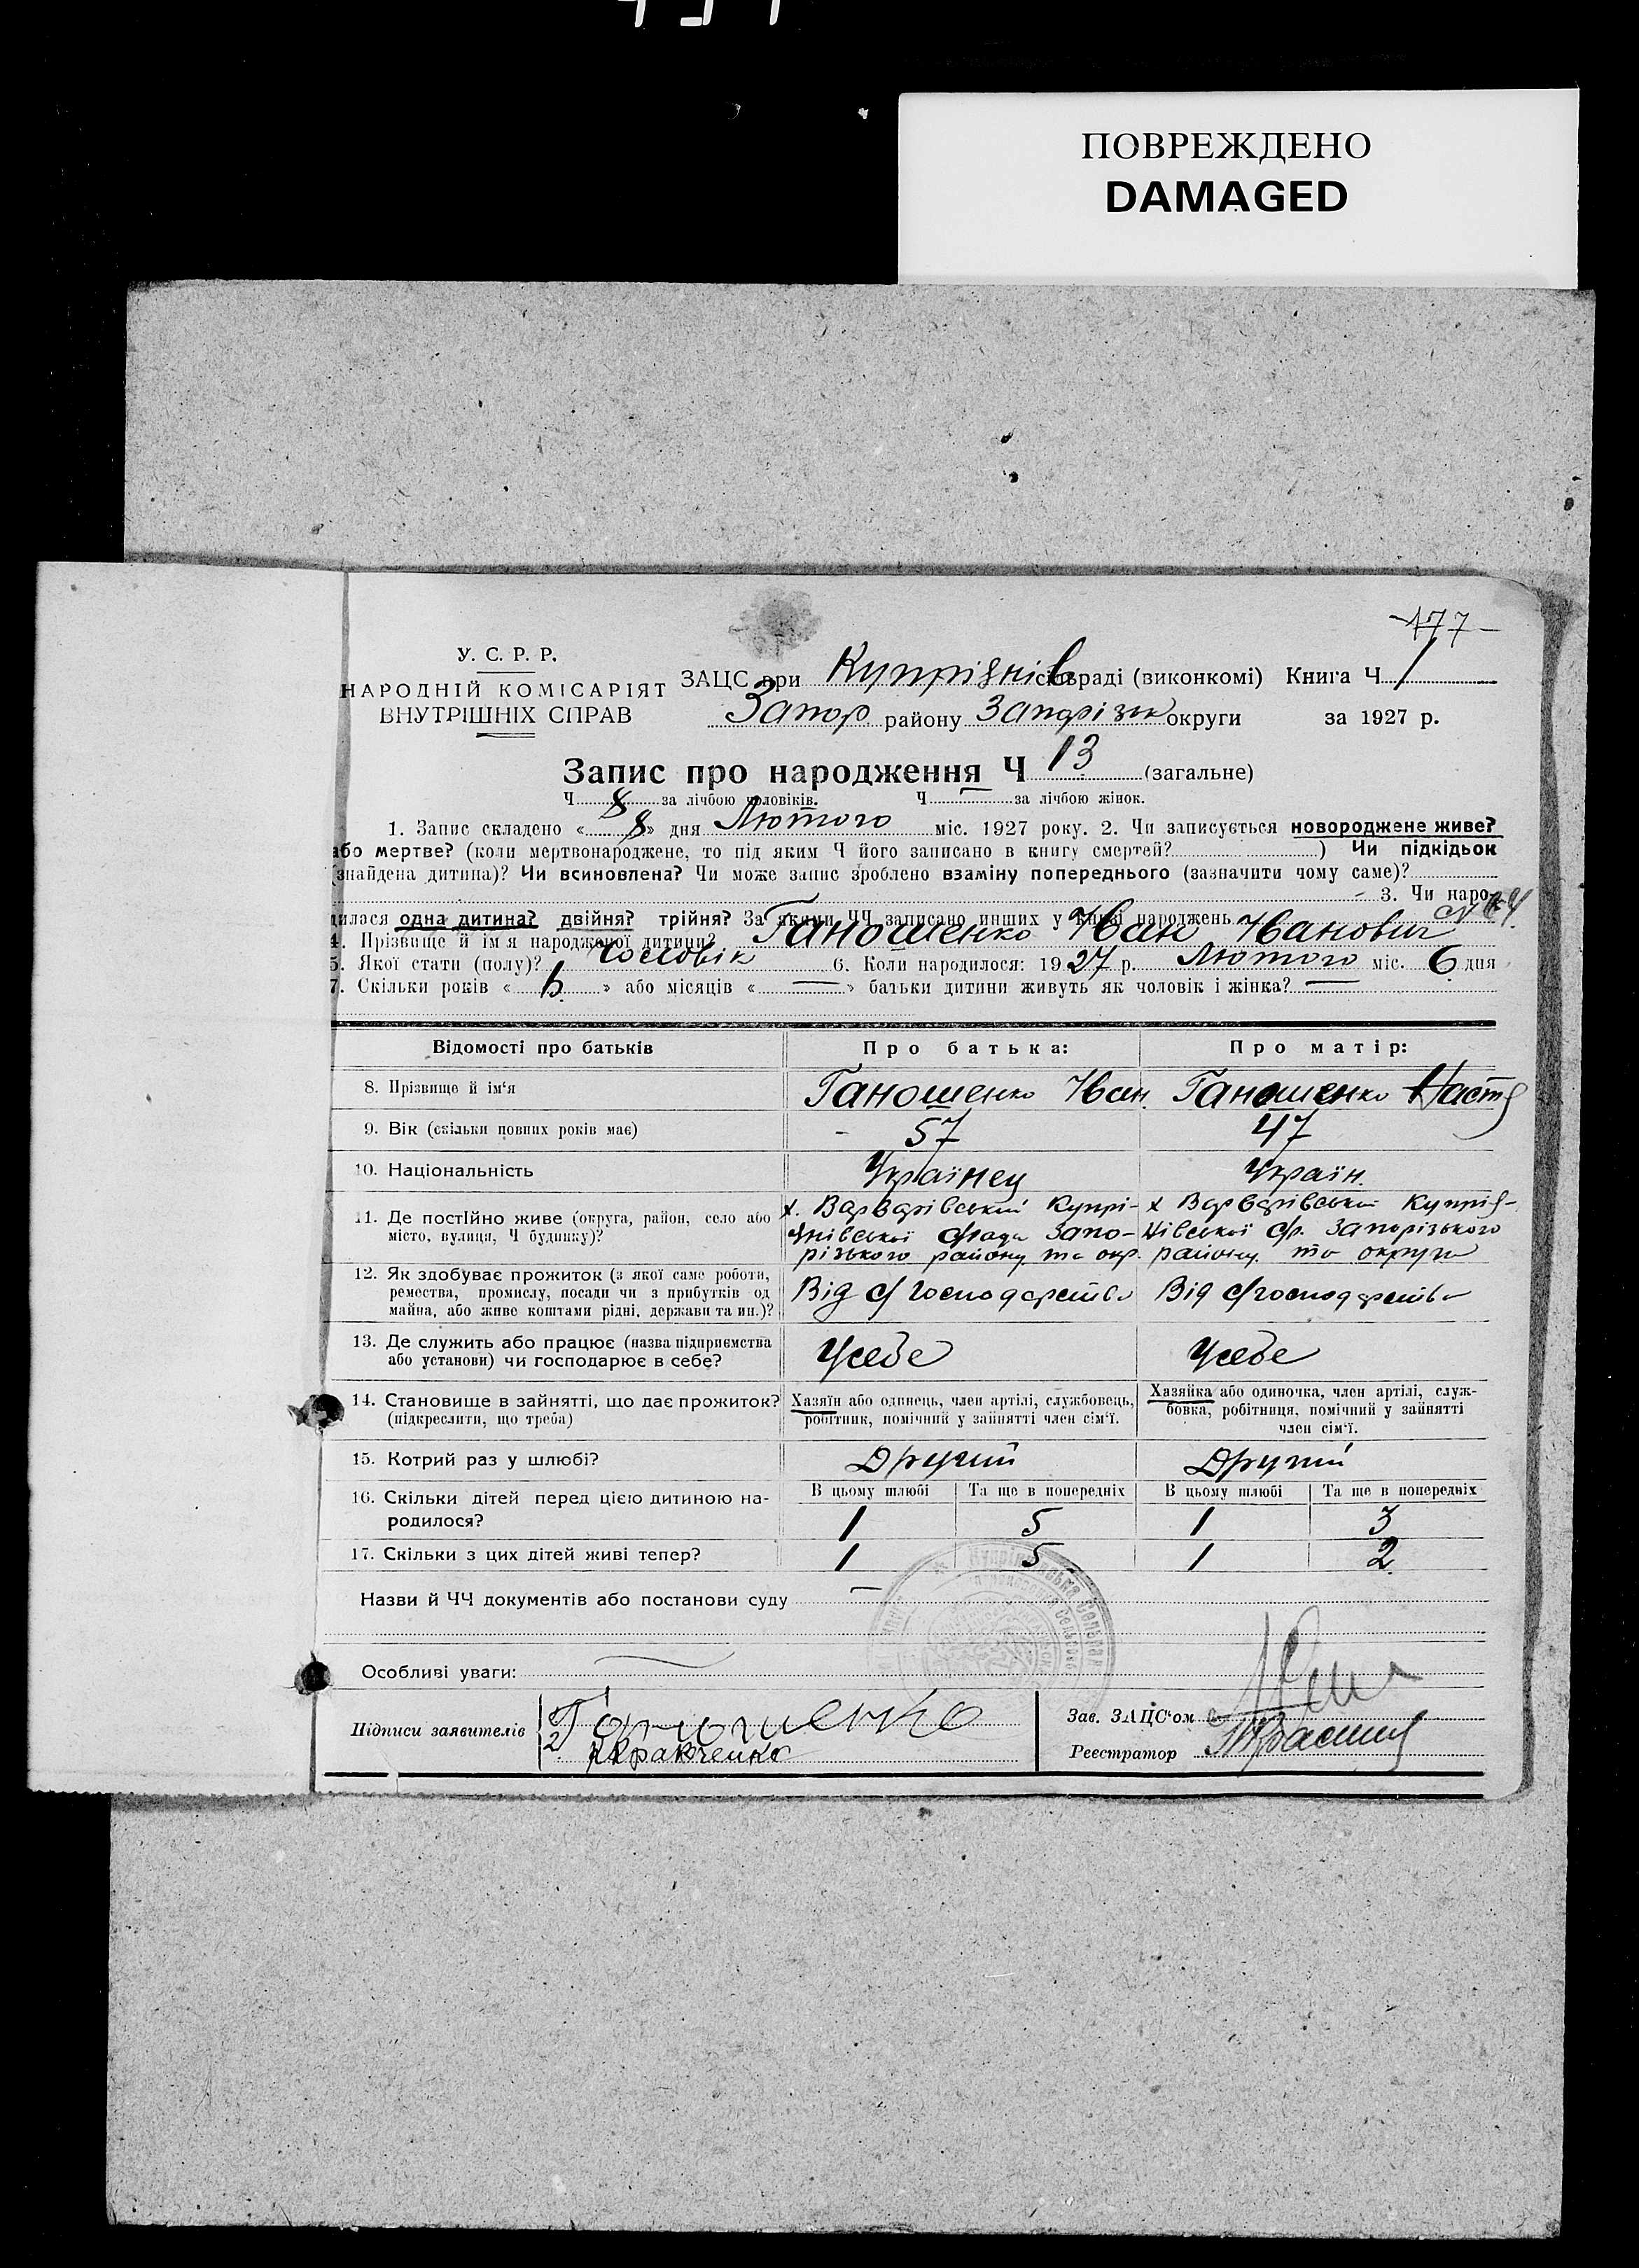 ПОВРЕЖДЕНО
DAMAGED
177
У. С. Р. Р.
НАРОДНІЙ КОМІСАРІЯТ
ВНУТРІШНІХ СПРАВ
ЗАЦС при Купріянів сільраді (виконкомі) Книга Ч 1
Запор. району Запоріzьк округи за 1927 р.
Запис про народження Ч 13 (загальне)
Ч 8 за лічбою чоловіків. Ч — за лічбою жінок.
1. Запис складено « 8 » дня Лютого міс. 1927 року. 2. Чи записується новороджене живе?
або мертве? (коли мертвонароджене, то під яким Ч його записано в книгу смертей? ) Чи підкідьок
(знайдена дитина)? Чи всиновлена? Чи може запис зроблено взаміну попереднього (зазначити чому саме)?
3. Чи наро-
дилася одна дитина? двійня? трійня? За якими ЧЧ записано инших у книзі народжень
4. Прізвище й ім'я народженої дитини? Ганошенко Иван Иванович
5. Якої стати (полу)? чоловік 6. Коли народилося: 1927 р. Лютого міс. 6 дня
7. Скільки років « 6 » або місяців « — » батьки дитини живуть як чоловік і жінка? —
Відомості про батьків Про батька: Про матір:
8. Прізвище й ім'я Ганошенко Иван. Ганошенко Настя
9. Вік (скільки повних років має) 57 47
10. Національність Українец Україн.
11. Де постІйно живе (округа, район, село або місто, вулиця, Ч будинку)?
х. Варварівський Купрі-
янівської с/ради Запо-
різького району та окр.
х Варварівський Купрія-
нівської с/р. Запорізького
району та округи
12. Як здобуває прожиток (з якої саме роботи,
ремества, промислу, посади чи з прибутків од
майна, або живе коштами рідні, держави та ин.)?
Від с/господарства Від с/господарства
13. Де служить або працює (назва підприємства
або установи) чи господарює в себе?
Усебе Усебе
14. Становище в зайнятті, що дає прожиток?
(підкреслити, що треба)
Хазяїн або одинець, член артілі, службовець,
робітник, помічний у зайнятті член сім'ї.
Хазяйка або одиночка, член артілі, служ-
бовка, робітниця, помічний у зайнятті
член сім'ї.
15. Котрий раз у шлюбі? Другий Другий
В цьому шлюбі Та ще в попередніх В цьому шлюбі Та ще в попередніх
16. Скільки дітей перед цією дитиною на-
родилося?
1 5 1 3
17. Скільки з цих дітей живі тепер? 1 5 1 2
Назви й ЧЧ документів або постанови суду —
Особливі уваги:
Підписи заявителів
1 Ганошенко
2 Кравченко
Зав. ЗАЦС'ом
Реєстратор